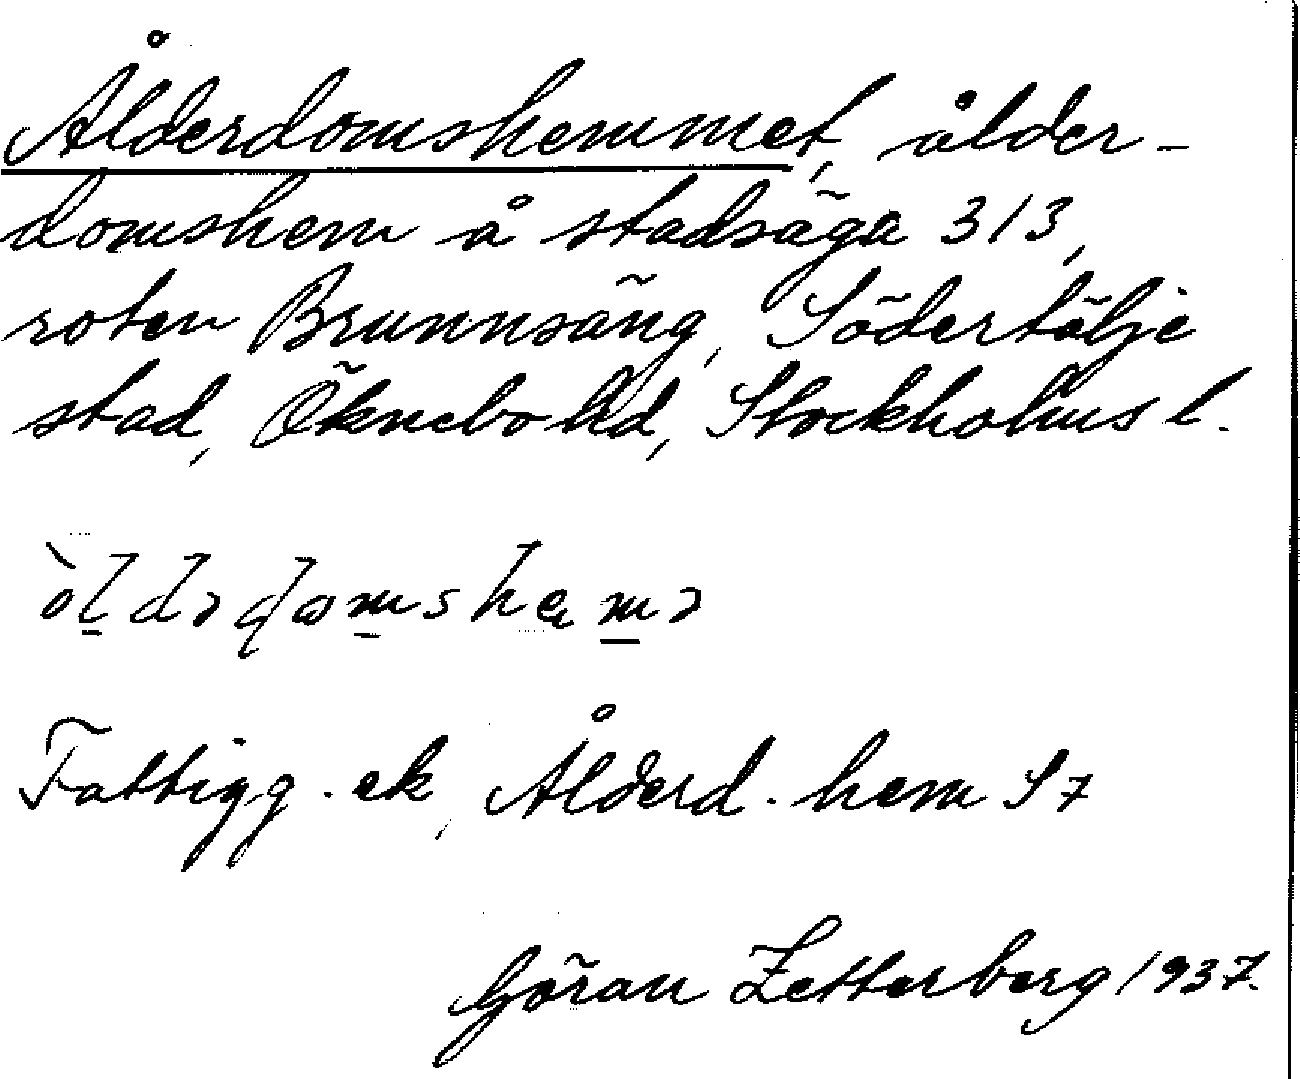 Ålderdomshemmet, ålder-
domshem å stadsäga 313,
roten Brunnsäng, Södertälje
stad, Öknebo hd, Stockholms l.
Fattigg. ek, Ålderd. hem S7
Göran Zetterberg 1937.